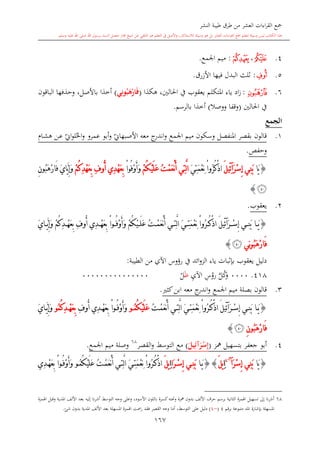 جمع القراءات العشر من طرق طيبة النشر
٤. عَلَيْكُمُۥ - بِعَهْدِكُمُۥ : ميم الجمع.
٥. أُوفِ : ثلث البدل فيها الأزرق.
٦. فَارْهَبُونِ : زاد ياء المتكلم يعقوب في الحالين، هكذا (فَارْهَبُونِۦ) أخذا بالأصل، وحذفها الباقون
في الحالين (وقفا ووصلا) أخذا بالرسم.
الجمع
١. قالون بقصر المنفصل وسكون ميم الجمع واندرج معه الأصبهاني وأبو عمرو والحلواني عن هشام
وحفص.
﴿ يَا بَنِي إِسْرَائِيلَ اذْكُرُوا نِعْمَتِيَ الَّتِي أَنْعَمْتُ عَلَيْكُمْ وَأَوْفُوا بِعَهْدِي أُوفِ بِعَهْدِكُمْ وَإِيَّايَ فَارْهَبُونِ
٤٠ ﴾
٢. يعقوب.
﴿ يَا بَنِي إِسْرَائِيلَ اذْكُرُوا نِعْمَتِيَ الَّتِي أَنْعَمْتُ عَلَيْكُمْ وَأَوْفُوا بِعَهْدِي أُوفِ بِعَهْدِكُمْ وَإِيَّايَ
فَارْهَبُونِۦ ٤٠ ﴾
دليل يعقوب بإثبات ياء الزوائد في رؤوس الآي من الطيبة:
٤١٨. ٠٠٠٠ وَكُلُّ رُؤْسِ الآيِ ظَلْ ٠٠٠٠٠٠٠٠٠٠٠٠٠٠٠
٣. قالون بصلة ميم الجمع واندرج معه ابن كثير.
﴿ يَا بَنِي إِسْرَائِيلَ اذْكُرُوا نِعْمَتِيَ الَّتِي أَنْعَمْتُ عَلَيْكُمُۥ وَأَوْفُوا بِعَهْدِي أُوفِ بِعَهْدِكُمُۥ وَإِيَّايَ
فَارْهَبُونِ ٤٠ ﴾
٤. أبو جعفر بتسهيل همز (إِسْرَائِيلَ) مع التوسط والقصر٦٨ وصلة ميم الجمع.
﴿ يَا بَنِي إِسْرَائِيلَ ﴾ ﴿ يَا بَنِي إِسْرَائِيلَ اذْكُرُوا نِعْمَتِيَ الَّتِي أَنْعَمْتُ عَلَيْكُمُۥ وَأَوْفُوا بِعَهْدِي
١٦٧